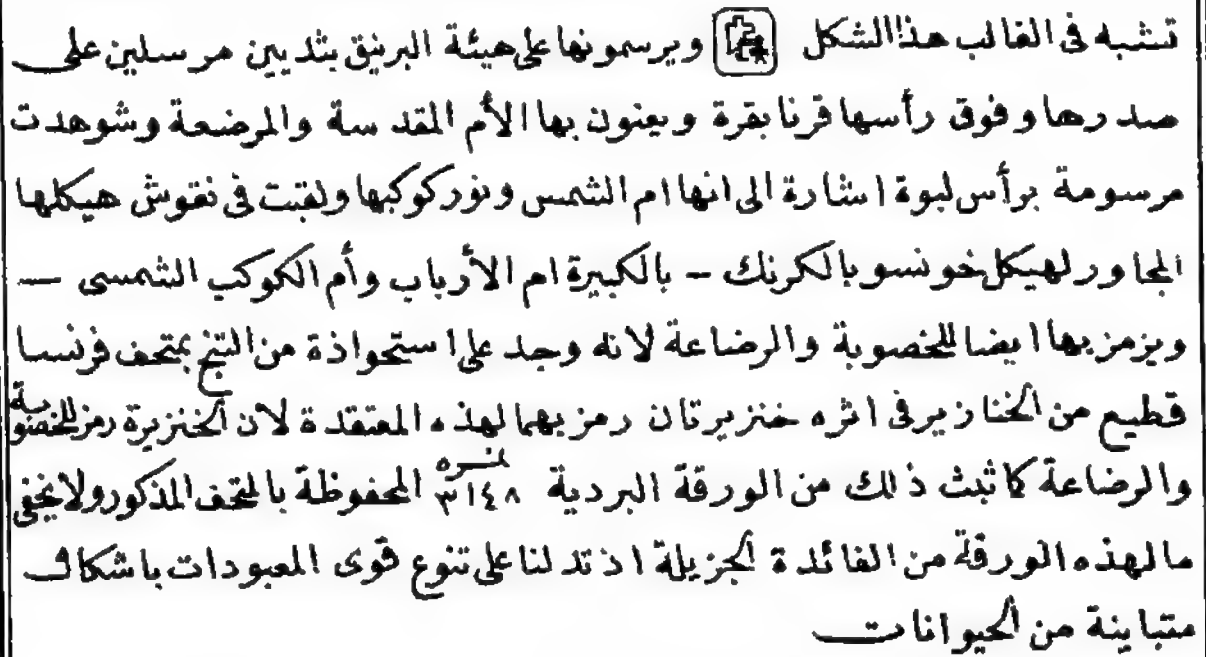 تشبه فى الغالب هذا الشكل ويرسمونها على هيئة البرنيق بثديين مرسلين على
صدرها وفوق رأسها قرنا بقرة ويعنون بها الأم المقدسة والمرضعة وشوهدت
مرسومة برأس لبوة اشارة الى انها ام الشمس ونور كوكبها ولقبت فى نقوش هيكلها
المجاور لهيكل خونسو بالكرنك - بالكبيرة ام الأرباب وأم الكوكب الشمسى —
ويزمز بها ايضا للخصوبة والرضاعة لانه وجد على استحواذة من التبخ بمتحف فرنسا
قطيع من الخنازير فى اثره خنزيرتان رمز بهما لهذه المعتقدة لان الخنزيرة رمز للخصوبة
والرضاعة كما ثبث ذلك من الورقة البردية نمره ٣١٤٨ المحفوظة بالمتحف المذكور ولا يخفى
ما لهذه الورقة من الفائدة الجزيلة اذ تدلنا على تنوع قوى المعبودات باشكال
متباينة من الحيوانات